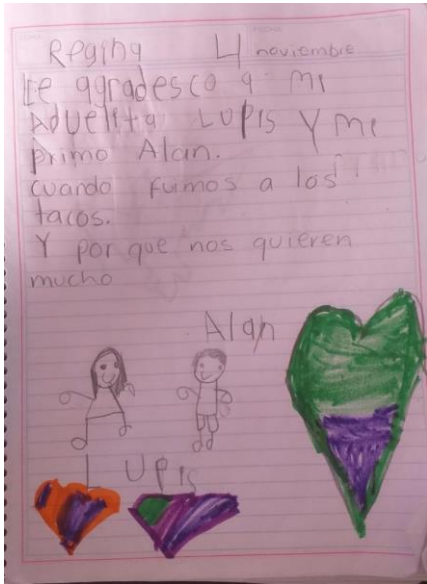 Regina 4 noviembre
Le agradesco a mi
Aduelita LUPIS Y mi
primo Alan.
cuando fuimos a los
tacos.
Y por que nos quieren
mucho
Alan
LUPIS